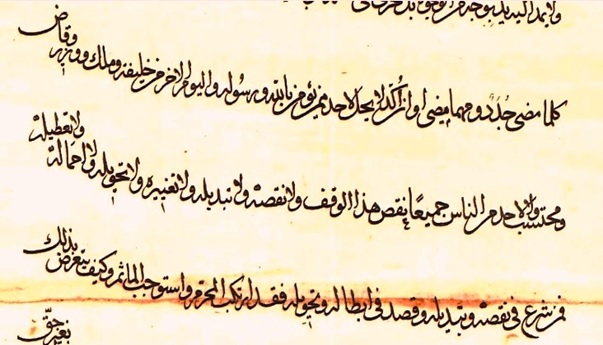 كلما مضى جدد ومهما مضى اواز أكد لا يحل لاحد ممن يؤمن بالله ورسوله واليوم الاخر من خليفة وملك ووزير وقاض
ومحتسب ولا لاحد من الناس جميعا نقص هذا الوقف ولا نقضه ولا تبديله ولا تغييره ولا تحويله ولا اهماله ولا تعطيله
فمن شرع في نقضه وتبديله وقصد في ابطاله وتحويله فقد ارتكب المحرم واستوجب المأثم وكيف يتعرض بذلك
بغير حق